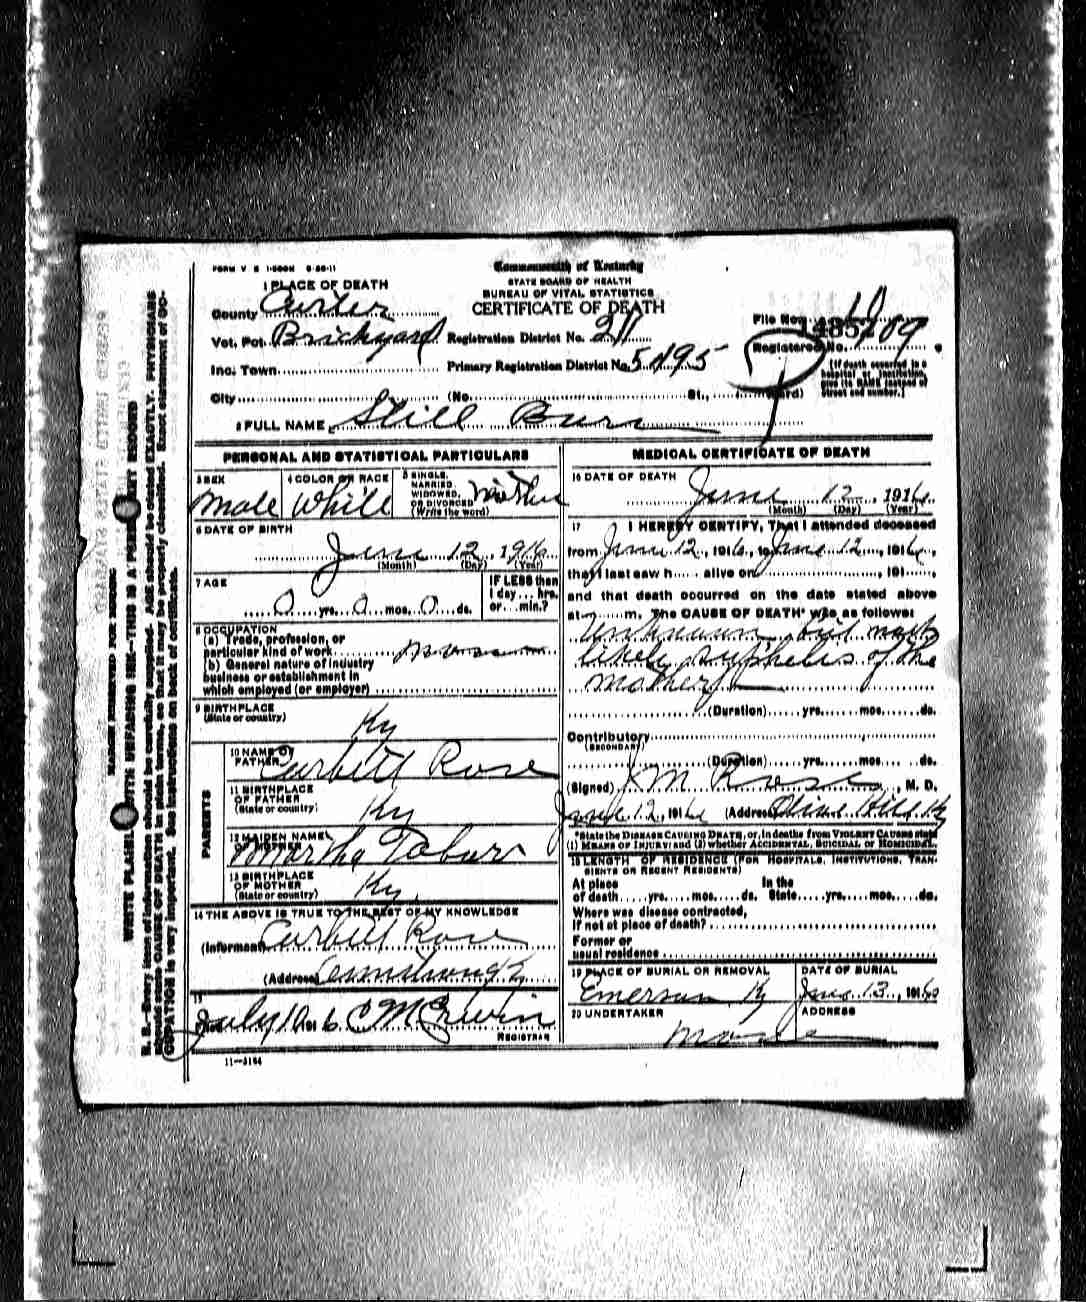 FORM V. S. 1-500M 8-26-11
Commonwealth of Kentucky
STATE BOARD OF HEALTH
BUREAU OF VITAL STATISTICS
CERTIFICATE OF DEATH
1 PLACE OF DEATH
County Carter
Vot. Pct. Brickyard Registration District No. 211
File No. 14857
Registered No. 109
Inc. Town Primary Registration District No. 5495
City (No. St., Ward)
[If death occurred in a hospital or institution, give its NAME instead of street and number.]
2 FULL NAME Still Burn
PERSONAL AND STATISTICAL PARTICULARS
3 SEX Male
4 COLOR OR RACE White
5 SINGLE, MARRIED, WIDOWED, OR DIVORCED (Write the word)
6 DATE OF BIRTH
June 12, 1916
(Month) (Day) (Year)
7 AGE
0 yrs. 0 mos. 0 ds.
IF LESS than 1 day... hrs. or... min.?
8 OCCUPATION
(a) Trade, profession, or
particular kind of work
(b) General nature of industry
business or establishment in
which employed (or employer)
9 BIRTHPLACE
(State or country) Ky
PARENTS
10 NAME OF FATHER Curbitt Rose
11 BIRTHPLACE OF FATHER (State or country) Ky
12 MAIDEN NAME OF MOTHER Martha
13 BIRTHPLACE OF MOTHER (State or country) Ky.
14 THE ABOVE IS TRUE TO THE BEST OF MY KNOWLEDGE
(Informant) Curbitt Rose
(Address)
15
Filed July 10 1916 C M Erwin
REGISTRAR
11—3184
MEDICAL CERTIFICATE OF DEATH
16 DATE OF DEATH
June 12, 1916
(Month) (Day) (Year)
17 I HEREBY CERTIFY, That I attended deceased
from June 12, 1916, to June 12, 1916,
that I last saw h alive on , 191 ,
and that death occurred on the date stated above
at m. The CAUSE OF DEATH* was as follows:
Unknown but most
likely syphelis of the
mother
(Duration) yrs. mos. ds.
Contributory
(SECONDARY)
(Duration) yrs. mos. ds.
(Signed) J M Rose, M. D.
June 12, 1916 (Address) Olive Hill Ky
*State the DISEASE CAUSING DEATH, or, in deaths from VIOLENT CAUSES state
(1) MEANS OF INJURY; and (2) whether ACCIDENTAL, SUICIDAL or HOMICIDAL.
18 LENGTH OF RESIDENCE (FOR HOSPITALS, INSTITUTIONS, TRANSIENTS OR RECENT RESIDENTS)
At place of death yrs. mos. ds. In the State yrs. mos. ds.
Where was disease contracted,
if not at place of death?
Former or
usual residence
19 PLACE OF BURIAL OR REMOVAL
Emerson Ky
DATE OF BURIAL
June 13, 1916
20 UNDERTAKER
ADDRESS
MARGIN RESERVED FOR BINDING
WRITE PLAINLY WITH UNFADING INK—THIS IS A PERMANENT RECORD
N. B.—Every item of information should be carefully supplied. AGE should be stated EXACTLY. PHYSICIANS
should state CAUSE OF DEATH in plain terms, so that it may be properly classified. Exact statement of OC-
CUPATION is very important. See instructions on back of certificate.